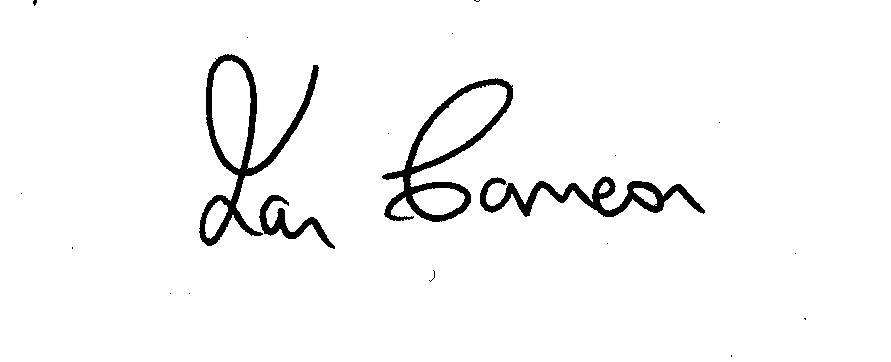 Ian Cameron